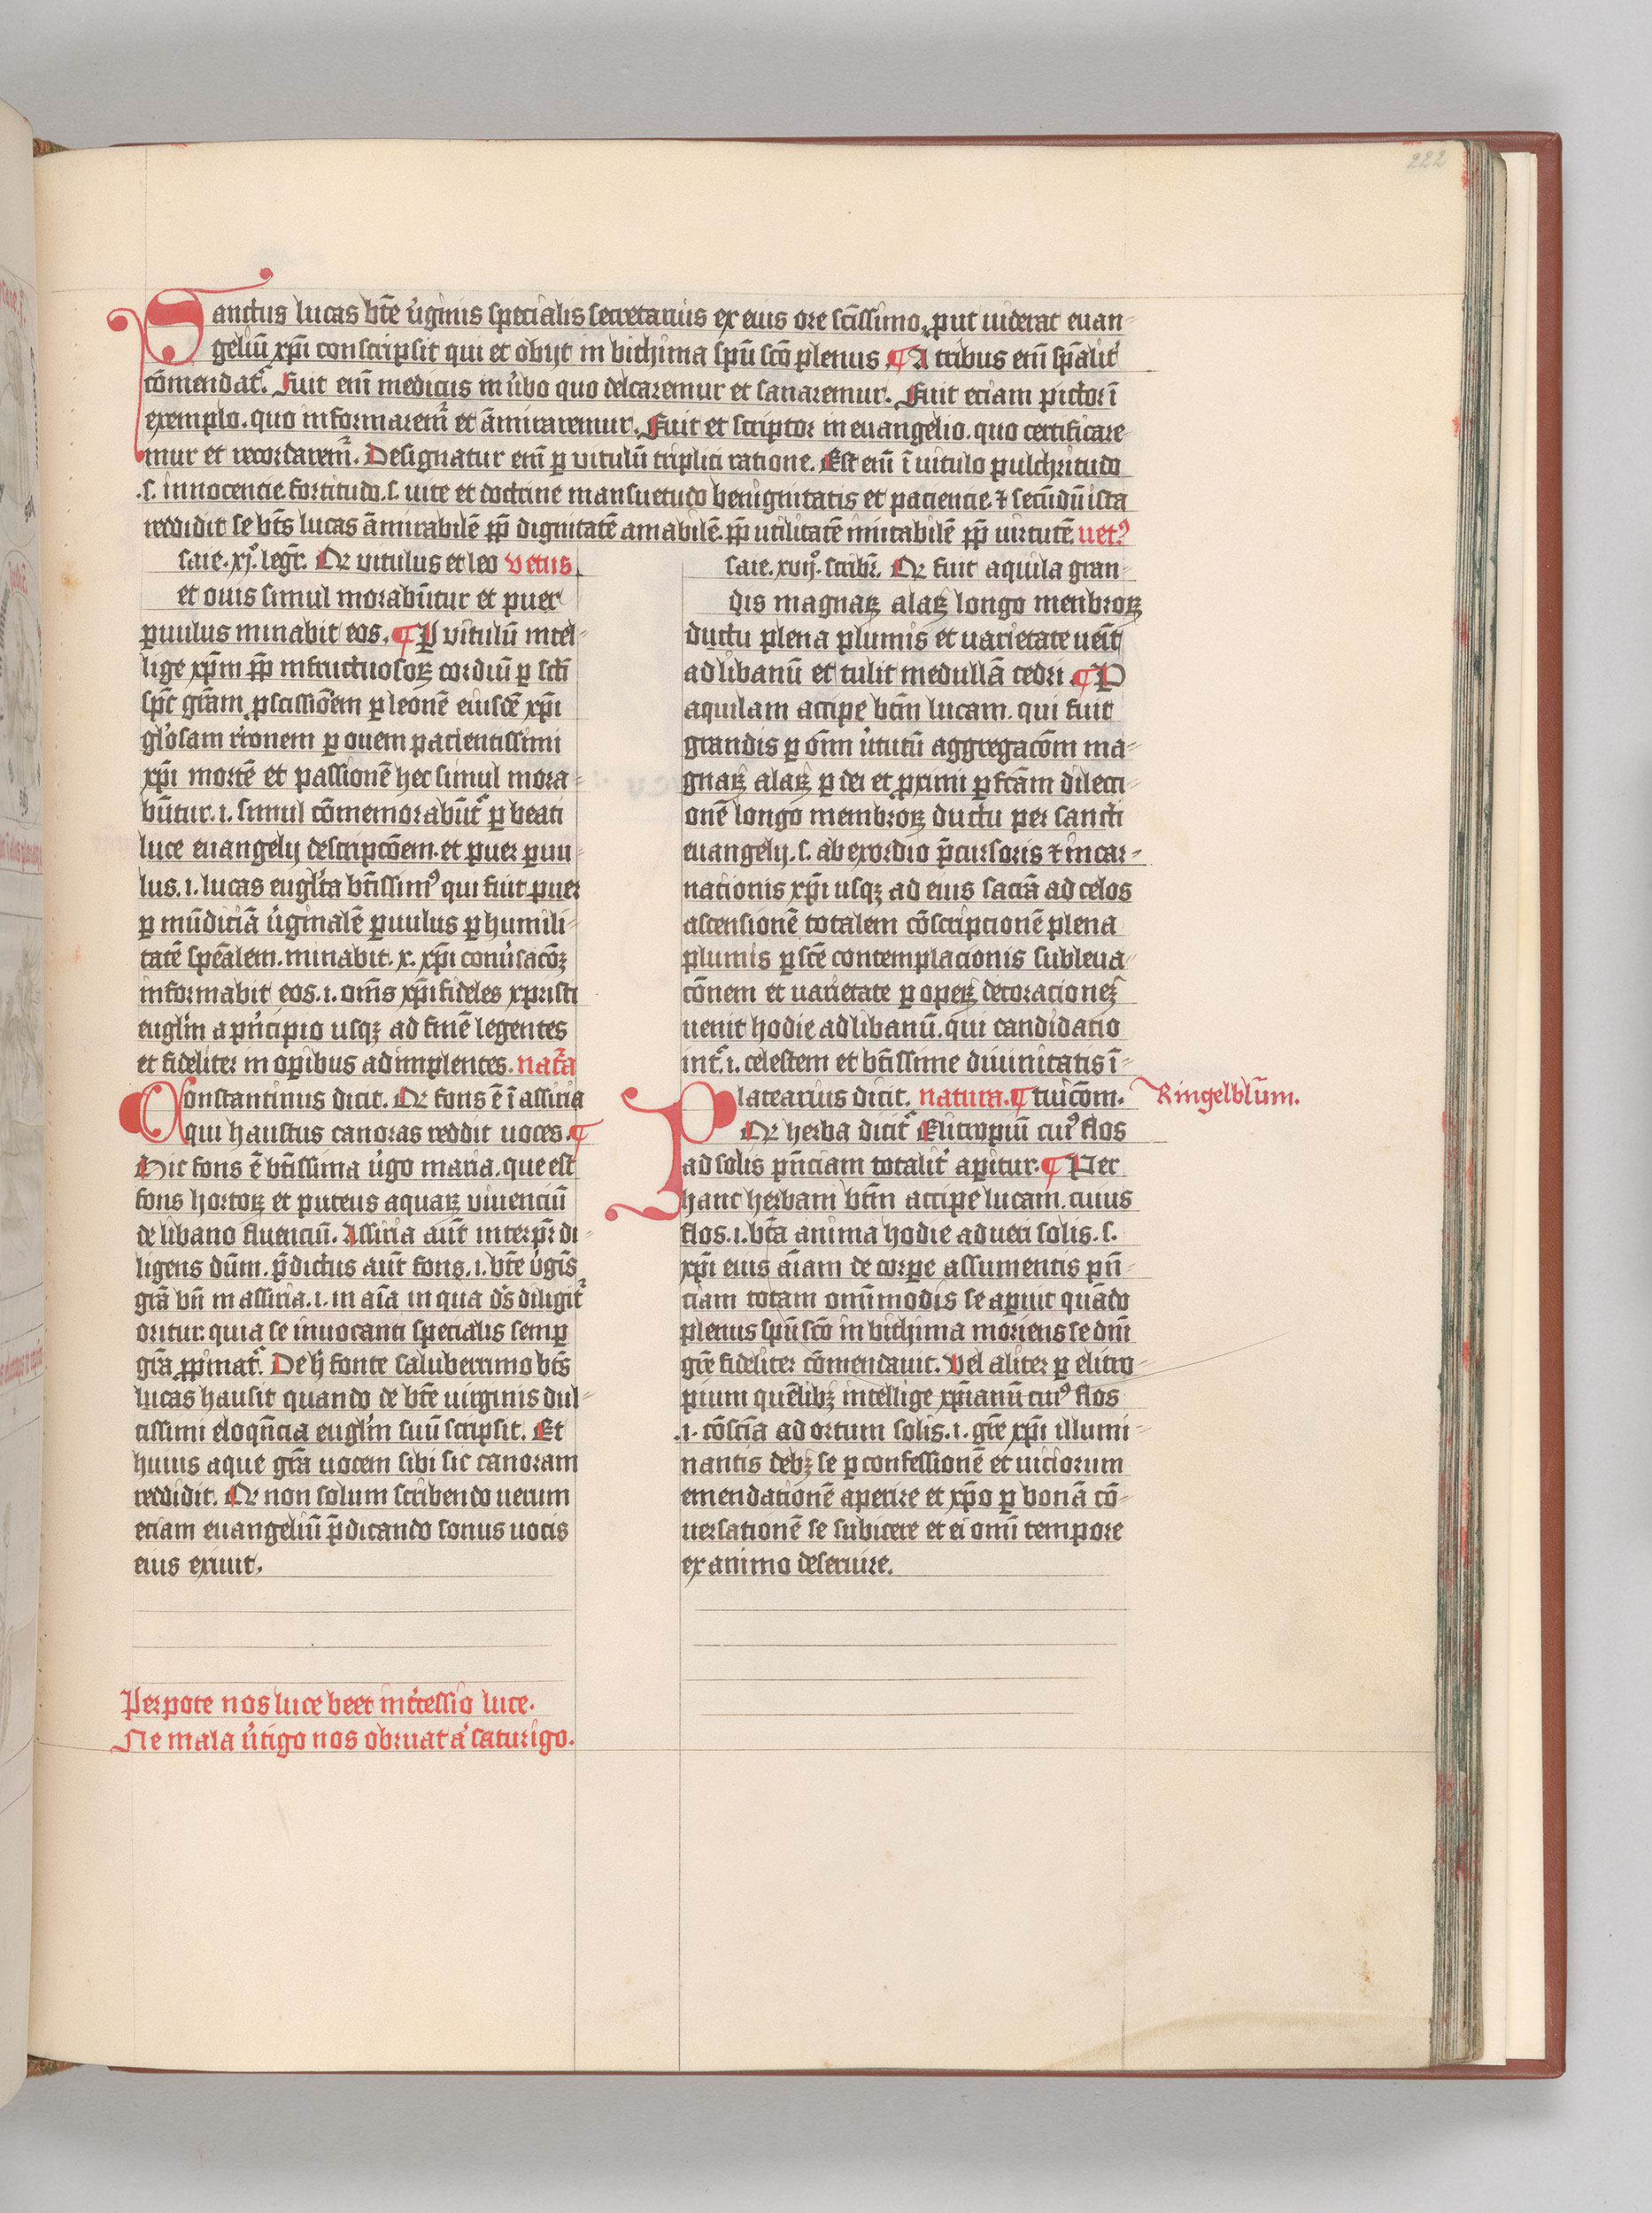 222
Sanctus lucas bt̄e ṽginis specialis secretarius ex eius ore sc̄issimo, ꝓut uiderat euan-
geliū xp̄i conscripsit qui et obijt in bithinia sp̄u scō plenus. ¶ A tribus eni̅ sp̄alit᷑
cōmendat᷑. Fuit eni̅ medicus in ṽbo quo delcaremur et sanaremur. Fuit eciam pictor ī
exemplo. quo informarem᷑ et āmiraremur. Fuit et scriptor in euangelio. quo certificare-
mur et recordarem᷑. Designatur eni̅ ꝑ vitulū triplici ratione. Est eni̅ ī uitulo pulchritudo
.s. innocencie. fortitudo .s. uite et doctrine mansuetudo benignitatis et paciencie. ⁊ secūdū ista
reddidit se bt̄s lucas āmirabilē ꝓp̄ dignitatē amabilē. ꝓp̄ utilitatē imitabilē ꝓp̄ uirtutē. uetꝰ
saie. xj°. legr̄. Qr vitulus et leo vetus
et ouis simul morabūtur et puer
ꝑuulus minabit eos. ¶ P vitulū intel-
lige xp̄m ꝓp̄ infructuosoꝝ cordiū ꝑ scti̅
sp̄c gr̄am ꝓscissiōem ꝑ leonē eiusdē xp̄i
gl'osam rr̄ionem ꝑ ouem pacientissimi
xp̄i mortē et passionē hec simul mora-
būtur. i. simul cōmemorabūt᷑ ꝑ beati
luce euangelij descripcōem. et puer ꝑuu-
lus. i. lucas eugl̄ta bt̄issimꝰ qui fuit puer
ꝑ mūdiciā ṽginalē ꝑuulus ꝑ humili-
tatē spēalem. minabit. x. xp̄i conṽsacōꝫ
informabit eos. i. om̄s xp̄i fideles xpristi
eugl̄m a pn̄cipio usqꝫ ad finē legentes
et fideliter in oꝑibus adimplentes. nat᷑a
Constantinus dicit. Qr fons ē ī assiria
qui haustus canoras reddit uoces. ¶
Hic fons ē bt̄issima ṽgo maria. que est
fons hortoꝝ et puteus aquaꝝ viuenciū
de libano fluenciū. Assiria aut̄ interpr̄ di-
ligens dūm. p̄dictus aut̄ fons. i. bt̄e ṽgīs
gr̄a bn̄ in assiria. i. in aīa in qua dꝰs diligit᷑
oritur. quia se inuocanti specialis semꝑ
gr̄a ꝓpinat᷑. De hͥ fonte saluberrimo bt̄s
lucas hausit quando de bt̄e uirginis dul-
cissimi eloqn̄cia eugl̄m suū scripsit. Et
huius aque gr̄a uocem sibi sic canoram
reddidit. Qr non solum scribendo uerum
eciam euangeliū p̄dicando sonus uocis
eius exiuit.
Perpote nos luce beet int᷑cessio luce.
Ne mala ṽtigo nos obruat a᷑ saturigo.
saie. xvij°. scribr̄. Qr fuit aquila gran-
dis magnaꝝ alaꝝ longo menbroꝝ
ductu plena plumis et uarietate uēit
ad libanū et tulit medullā cedri. ¶ P
aquilam accipe btm̄ lucam. qui fuit
grandis ꝑ ōim ṽtutū aggregacōm ma-
gnaꝝ alaꝝ ꝑ dei et ꝓximi ꝑfcām dilecti-
onē longo membroꝝ ductu per sancti
euangelij. s. ab exordio p̄cursoris ⁊ incar-
nacionis xp̄i usqꝫ ad eius sacrā ad celos
ascensionē totalem cōscripcionē plena
plumis ꝑ scē contemplacionis subleua-
cōnem et uarietate ꝑ operꝫ decoracioneꝫ
uenit hodie ad libanū. qui candidatio
int᷑. i. celestem et bt̄issime diuinitatis ī-
Platearius dicit. natura. ¶ tuicōm.
Qr herba dicit᷑ Elitropiū cuiꝰ flos
ad solis pn̄ciam totalit᷑ aꝑitur. ¶ Per
hanc herbam btm̄ accipe lucam. cuius
flos. i. bt̄a anima hodie adueci solis. s.
xp̄i eius aīam de corꝑe assumentis pn̄-
ciam totam omi̅modis se aꝑuit quādo
plenus sp̄u scō in bithinia moriens se dni̅
gr̄e fideliter cōmendauit. Vel aliter ꝑ elitro-
pium quēlibꝫ intellige xp̄ianū cuiꝰ flos
.i. cōsciā ad ortum solis. i. gr̄e xp̄i illumi-
nantis debꝫ se ꝑ confessionē et uiciorum
emendationē aperire et xp̄o ꝑ bonā cō-
uersationē se subicere et ei omi̅ tempore
ex animo deseruire.
Ringelblūm.